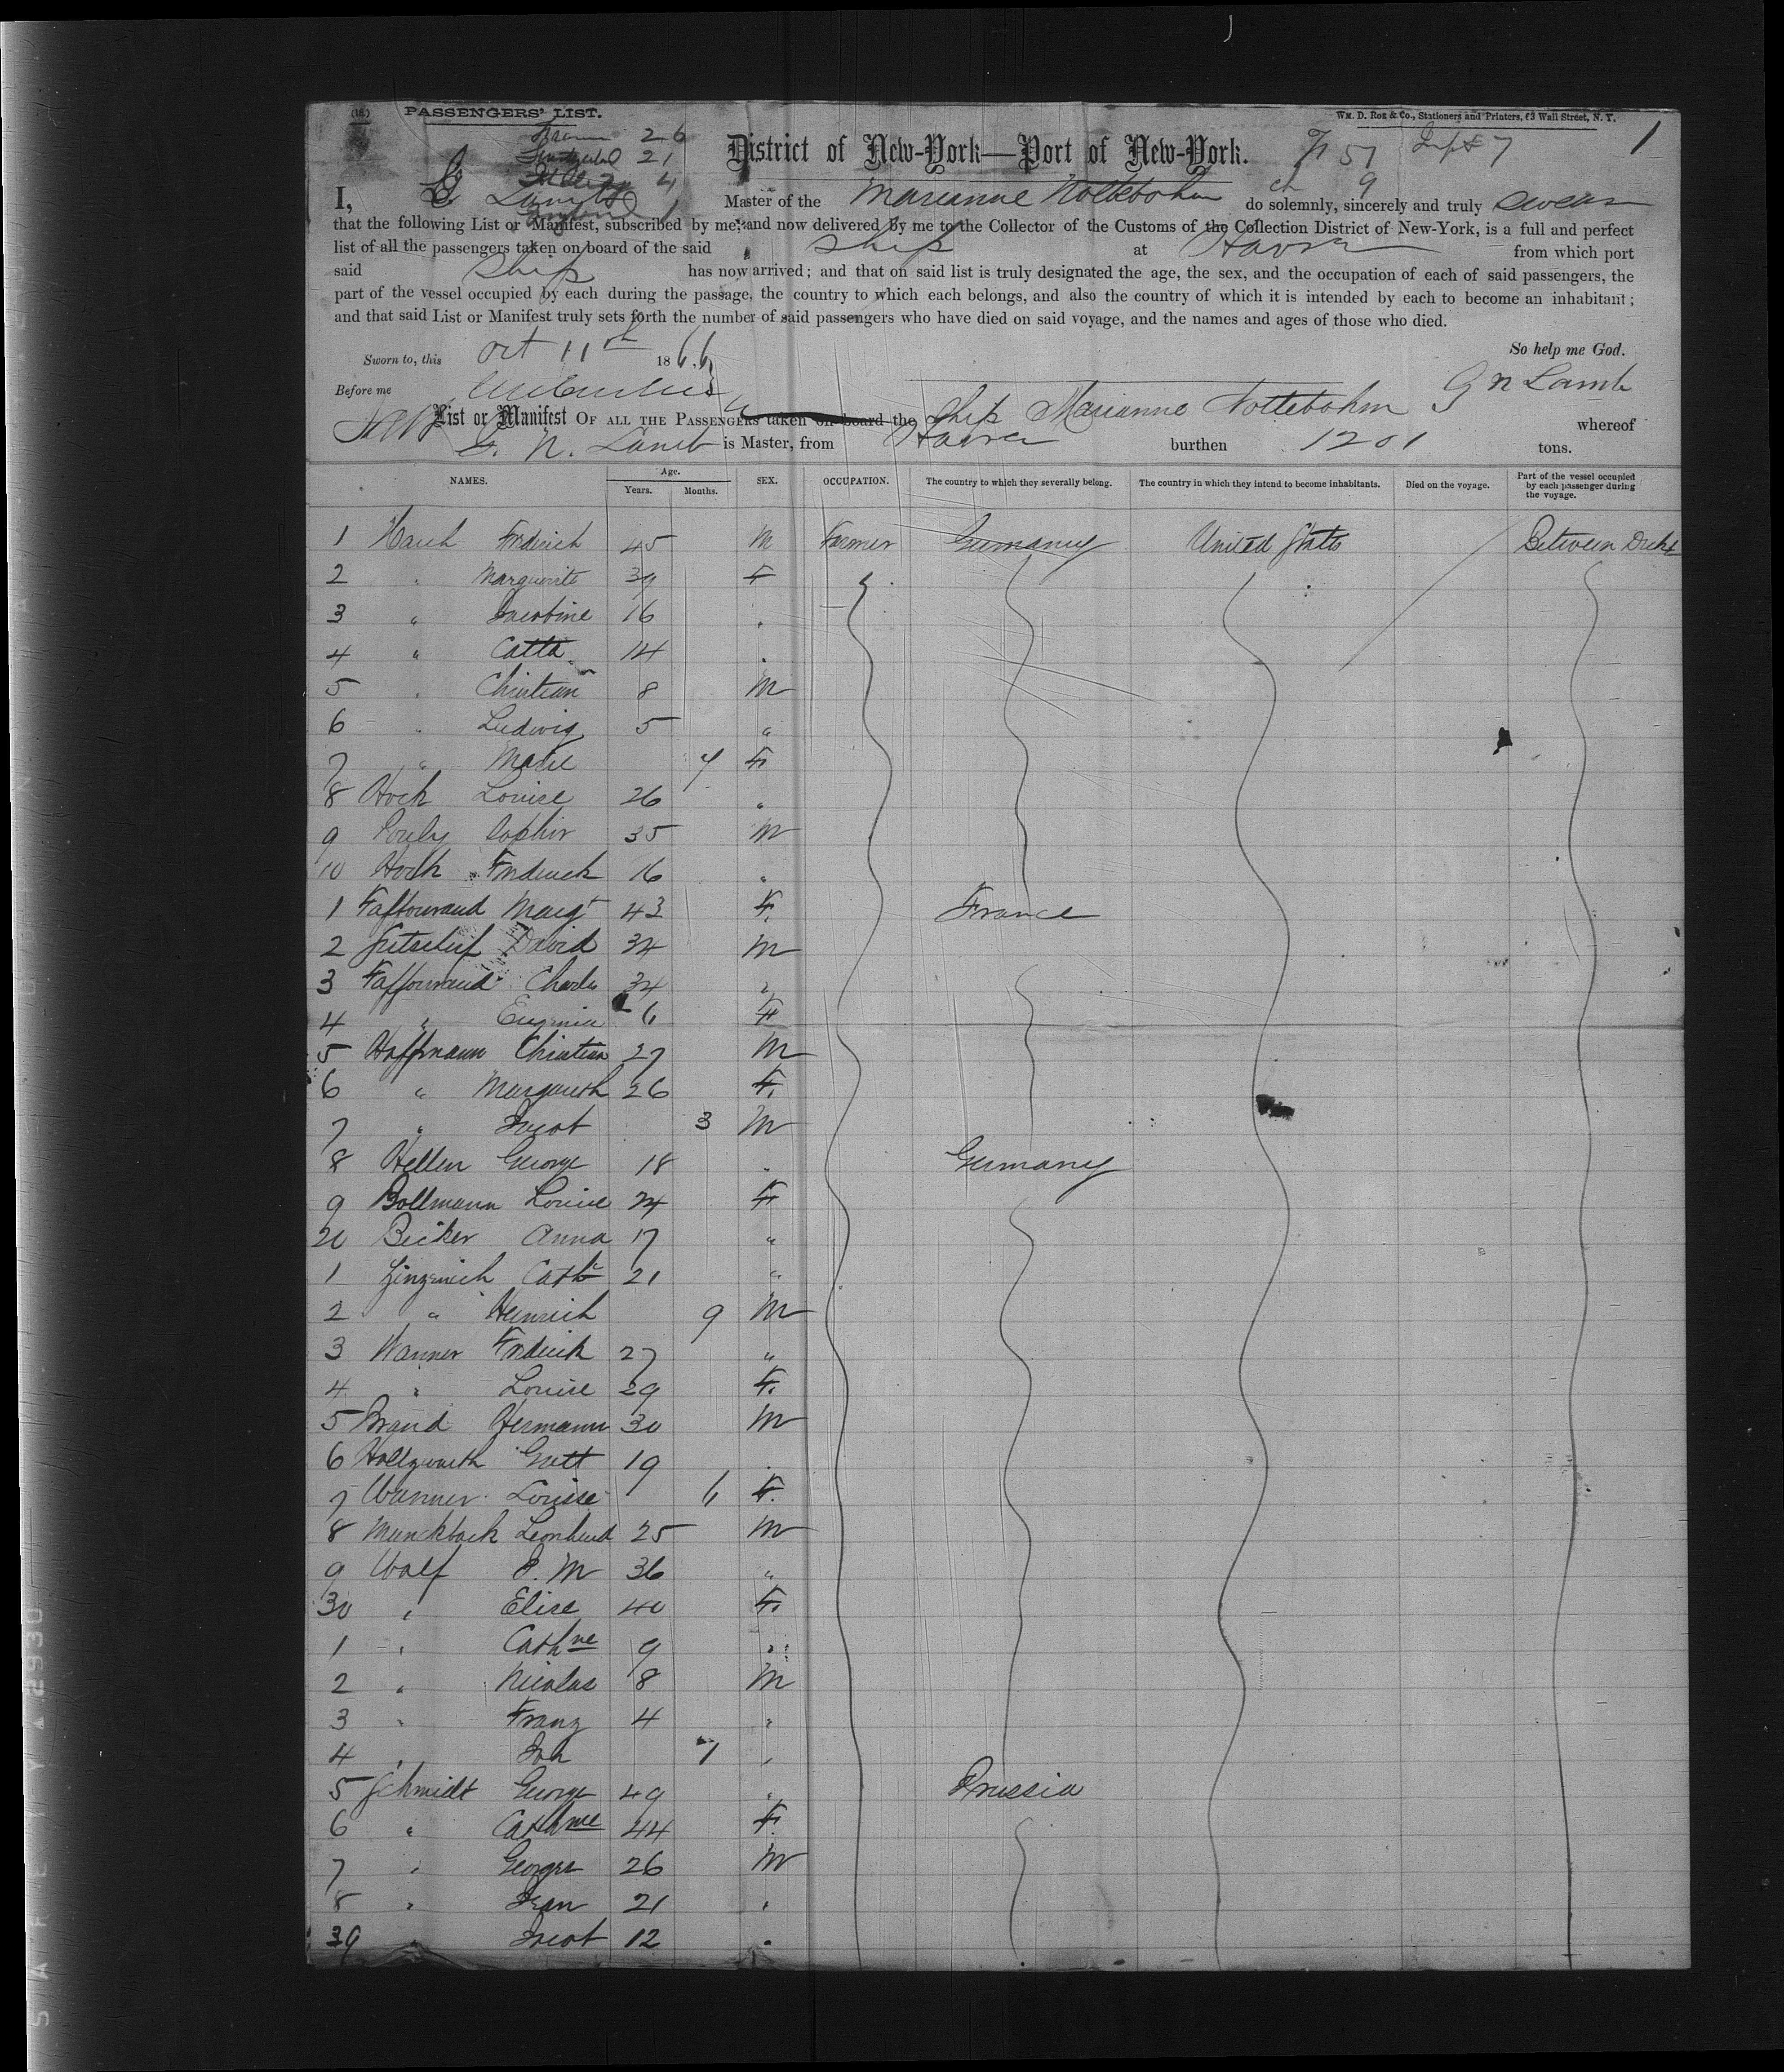 PASSENGERS' LIST.
Wm. D. Roe & Co., Stationers and Printers, 63 Wall Street, N. Y.
26
21
4
1
District of New-York—Port of New-York.
57
7
9
1
I, G Lamb Master of the Marianne Nottebohm do solemnly, sincerely and truly swear
that the following List or Manifest, subscribed by me, and now delivered by me to the Collector of the Customs of the Collection District of New-York, is a full and perfect
list of all the passengers taken on board of the said Ship at Havre from which port
said Ship has now arrived; and that on said list is truly designated the age, the sex, and the occupation of each of said passengers, the
part of the vessel occupied by each during the passage, the country to which each belongs, and also the country of which it is intended by each to become an inhabitant;
and that said List or Manifest truly sets forth the number of said passengers who have died on said voyage, and the names and ages of those who died.
So help me God.
Sworn to, this Oct 11th 1866.
Before me
G N Lamb
List or Manifest OF ALL THE PASSENGERS taken on board the Ship Marianne Nottebohm whereof
G. N. Lamb is Master, from Havre burthen 1201 tons.
NAMES. Age. Years. Months. SEX. OCCUPATION. The country to which they severally belong. The country in which they intend to become inhabitants. Died on the voyage. Part of the vessel occupied by each passenger during the voyage.
1 Hauh Frederich 45 M Farmer Germany United States Between Decks
2 " Marguerite 39 F
3 " Jacobine 16 "
4 " Catta 14 "
5 " Christian 8 M
6 " Ludwig 5 "
7 " Marie 7 F
8 Hoch Louise 26 "
9 Pouly Sophir 35 M
10 Hoch Frederick 16 "
1 Faffouraud Margt 43 F. France
2 David 34 M
3 Faffouraud Charles 34 "
4 " Eugenia 6 F
5 Hoffmann Christian 27 M
6 " Margareth 26 F.
7 " Jacob 3 M
8 Hellen George 18 " Germany
9 Bollmann Louise 24 F
20 Becker Anna 17 "
1 Zinzerich Cathe 21 "
2 " Heinrich 9 M
3 Wanner Frederick 27 "
4 " Louise 29 F.
5 Brand Hermann 30 M
6 Hollzwarth Gott 19 "
7 Wanner Louise 6 F.
8 Munckback Leonhard 25 M
9 Wolf P. M 36 "
30 " Elise 40 F.
1 " Cathne 9 "
2 " Nicolas 8 M
3 " Franz 4 "
4 " Joh 7 "
5 Schmidt George 49 " Prussia
6 " Cathne 44 F.
7 " Georges 26 M
8 " Jean 21 "
39 " Jacob 12 "